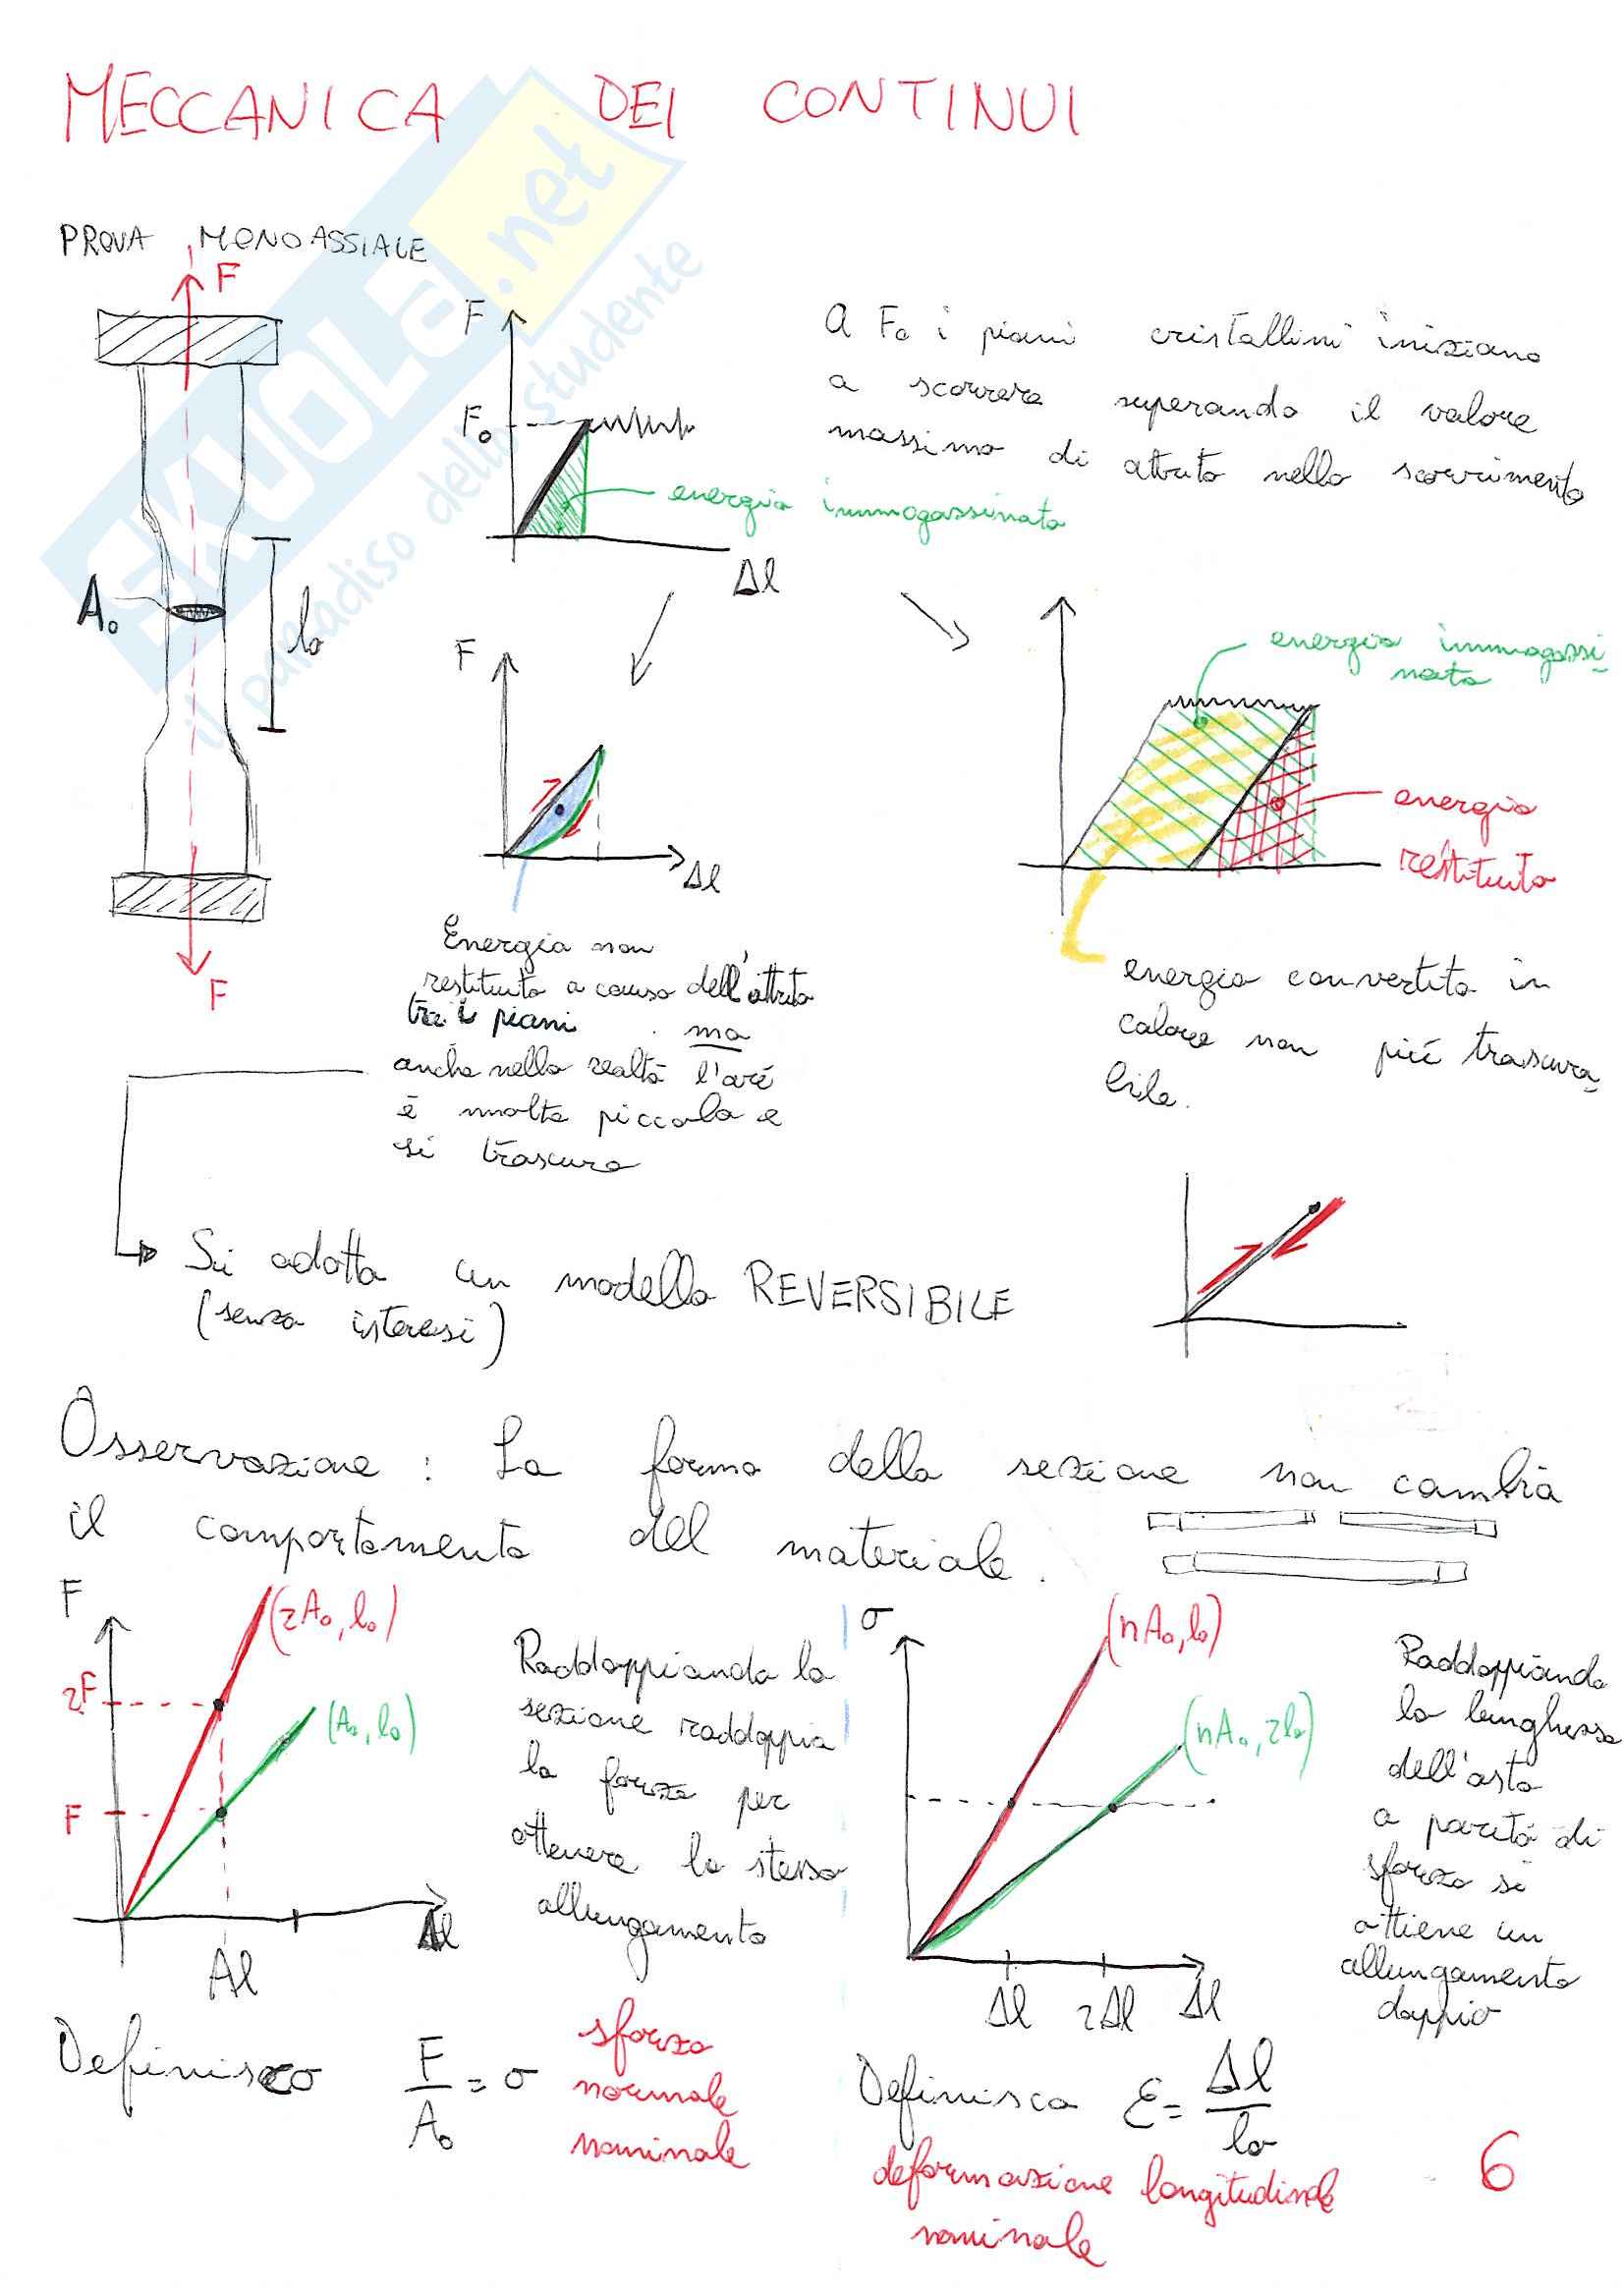 MECCANICA DEI CONTINUI
SKUOLA.net
il paradiso dello studente
PROVA MONOASSIALE
F
A₀
l₀
F
F
F₀
energia immagazzinata
Δl
A F₀ i piani cristallini iniziano
a scorrere superando il valore
massimo di attrito nello scorrimento
F
Δl
Energia non
restituita a causa dell'attrito
tra i piani ma
anche nella realtà l'area
è molto piccola e
si trascura
energia immagazzi-
nata
energia
restituita
energia convertita in
calore non più trascura-
bile.
Si adotta un modello REVERSIBILE
(senza isteresi)
Osservazione: La forma della sezione non cambia
il comportamento del materiale.
F
(2A₀, l₀)
2F
(A₀, l₀)
F
Δl
Δl
Raddoppiando la
sezione raddoppia
la forza per
ottenere lo stesso
allungamento
σ
(nA₀, l₀)
(nA₀, 2l₀)
Δl 2Δl Δl
Raddoppiando
la lunghezza
dell'asta
a parità di
sforzo si
ottiene un
allungamento
doppio
Definisco F/A₀ = σ sforzo
normale
nominale
Definisco ε = Δl/l₀
deformazione longitudinale
nominale
6